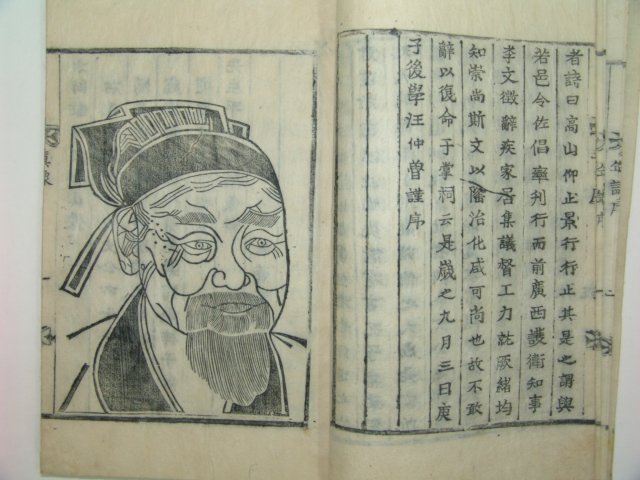 者詩曰高山仰止景行行止其是之謂與
若邑令佐倡率刋行而前廣西護衛知事
李文徵辭疾家居集議督工力就厥緒均
知崇尚斯文以隆治化咸可尚也故不敢
辭以復命于掌祠云是歲之九月三日庚
子後學汪仲魯謹序
年譜序
眞像